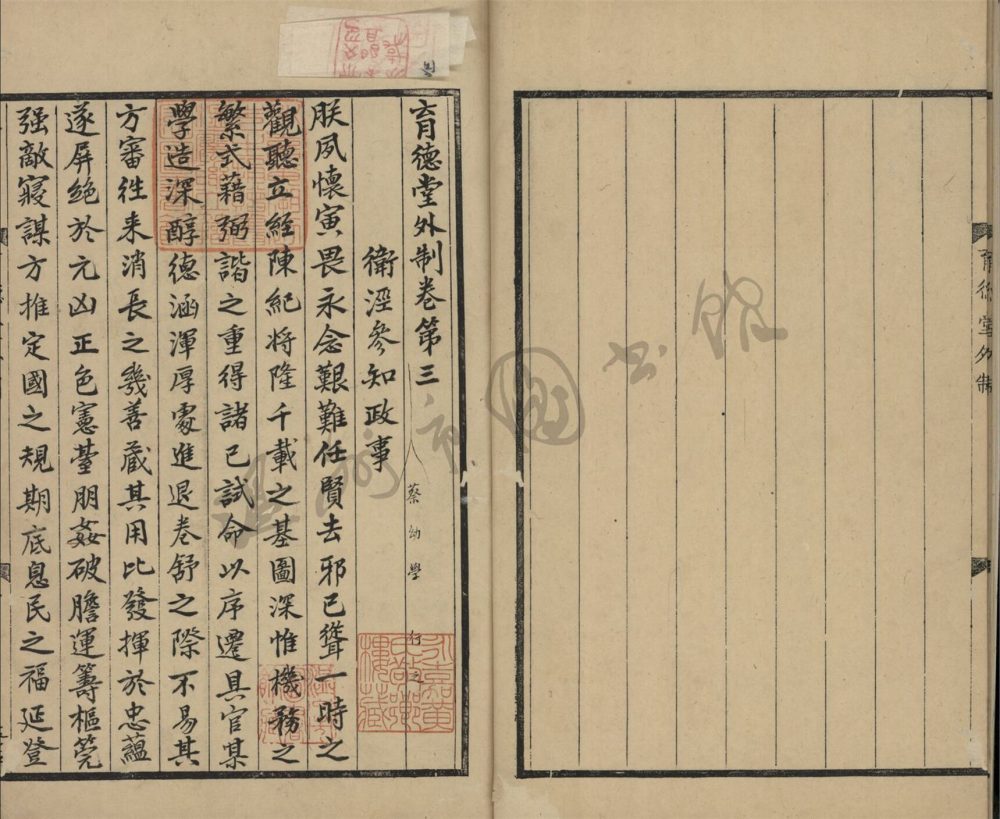 育德堂外制
育德堂外制卷第三
蔡幼學 行之
衛涇參知政事
朕夙懷寅畏永念艱難任賢去邪已聳一時之
觀聽立經陳紀将隆千載之基圖深惟機務之
繁式藉弼諧之重得諸已試命以序遷具官某
學造深醇德涵渾厚處進退卷舒之際不易其
方審徃来消長之幾善藏其用比發揮於忠蘊
遂屏絶於元凶正色憲臺朋姦破膽運籌樞筦
强敵寢謀方推定國之規期底息民之福延登
永嘉黃
氏敬鄉
樓藏
溫州市圖书館